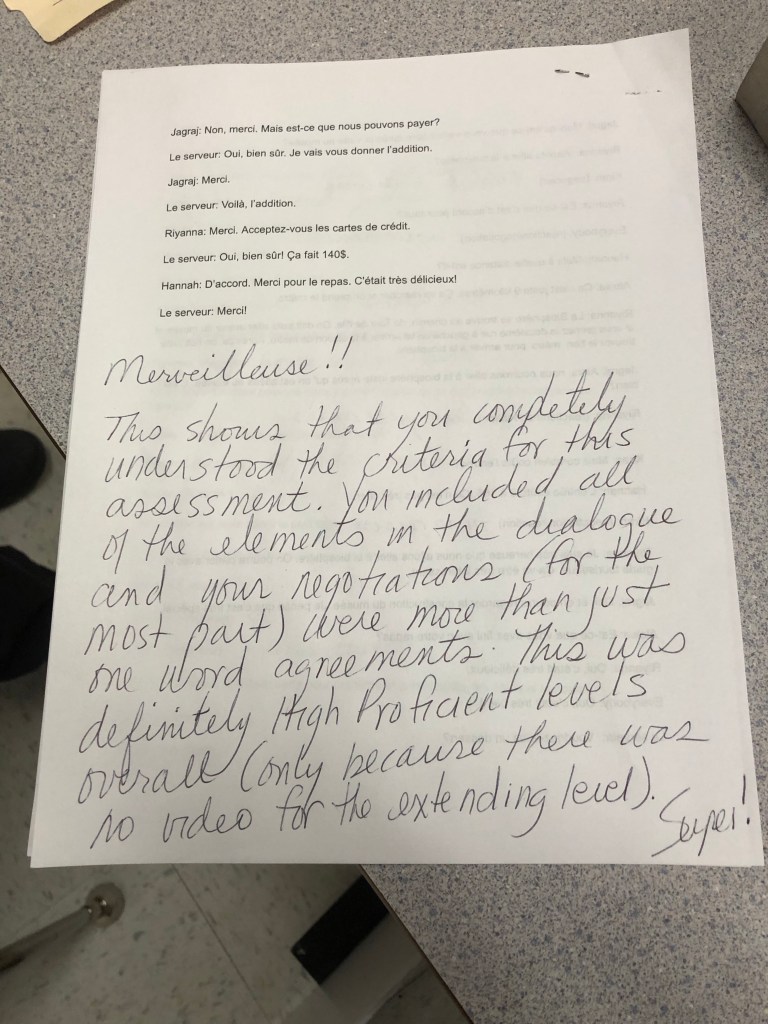 Jagraj: Non, merci. Mais est-ce que nous pouvons payer?
Le serveur: Oui, bien sûr. Je vais vous donner l'addition.
Jagraj: Merci.
Le serveur: Voilà, l'addition.
Riyanna: Merci. Acceptez-vous les cartes de crédit.
Le serveur: Oui, bien sûr! Ça fait 140$.
Hannah: D'accord. Merci pour le repas. C'était très délicieux!
Le serveur: Merci!
Merveilleuse!!
This shows that you completely
understood the criteria for this
assessment. You included all
of the elements in the dialogue
and your negotiations (for the
most part) were more than just
one word agreements. This was
definitely High Proficient levels
overall (only because there was
no video for the extending level).
Super!